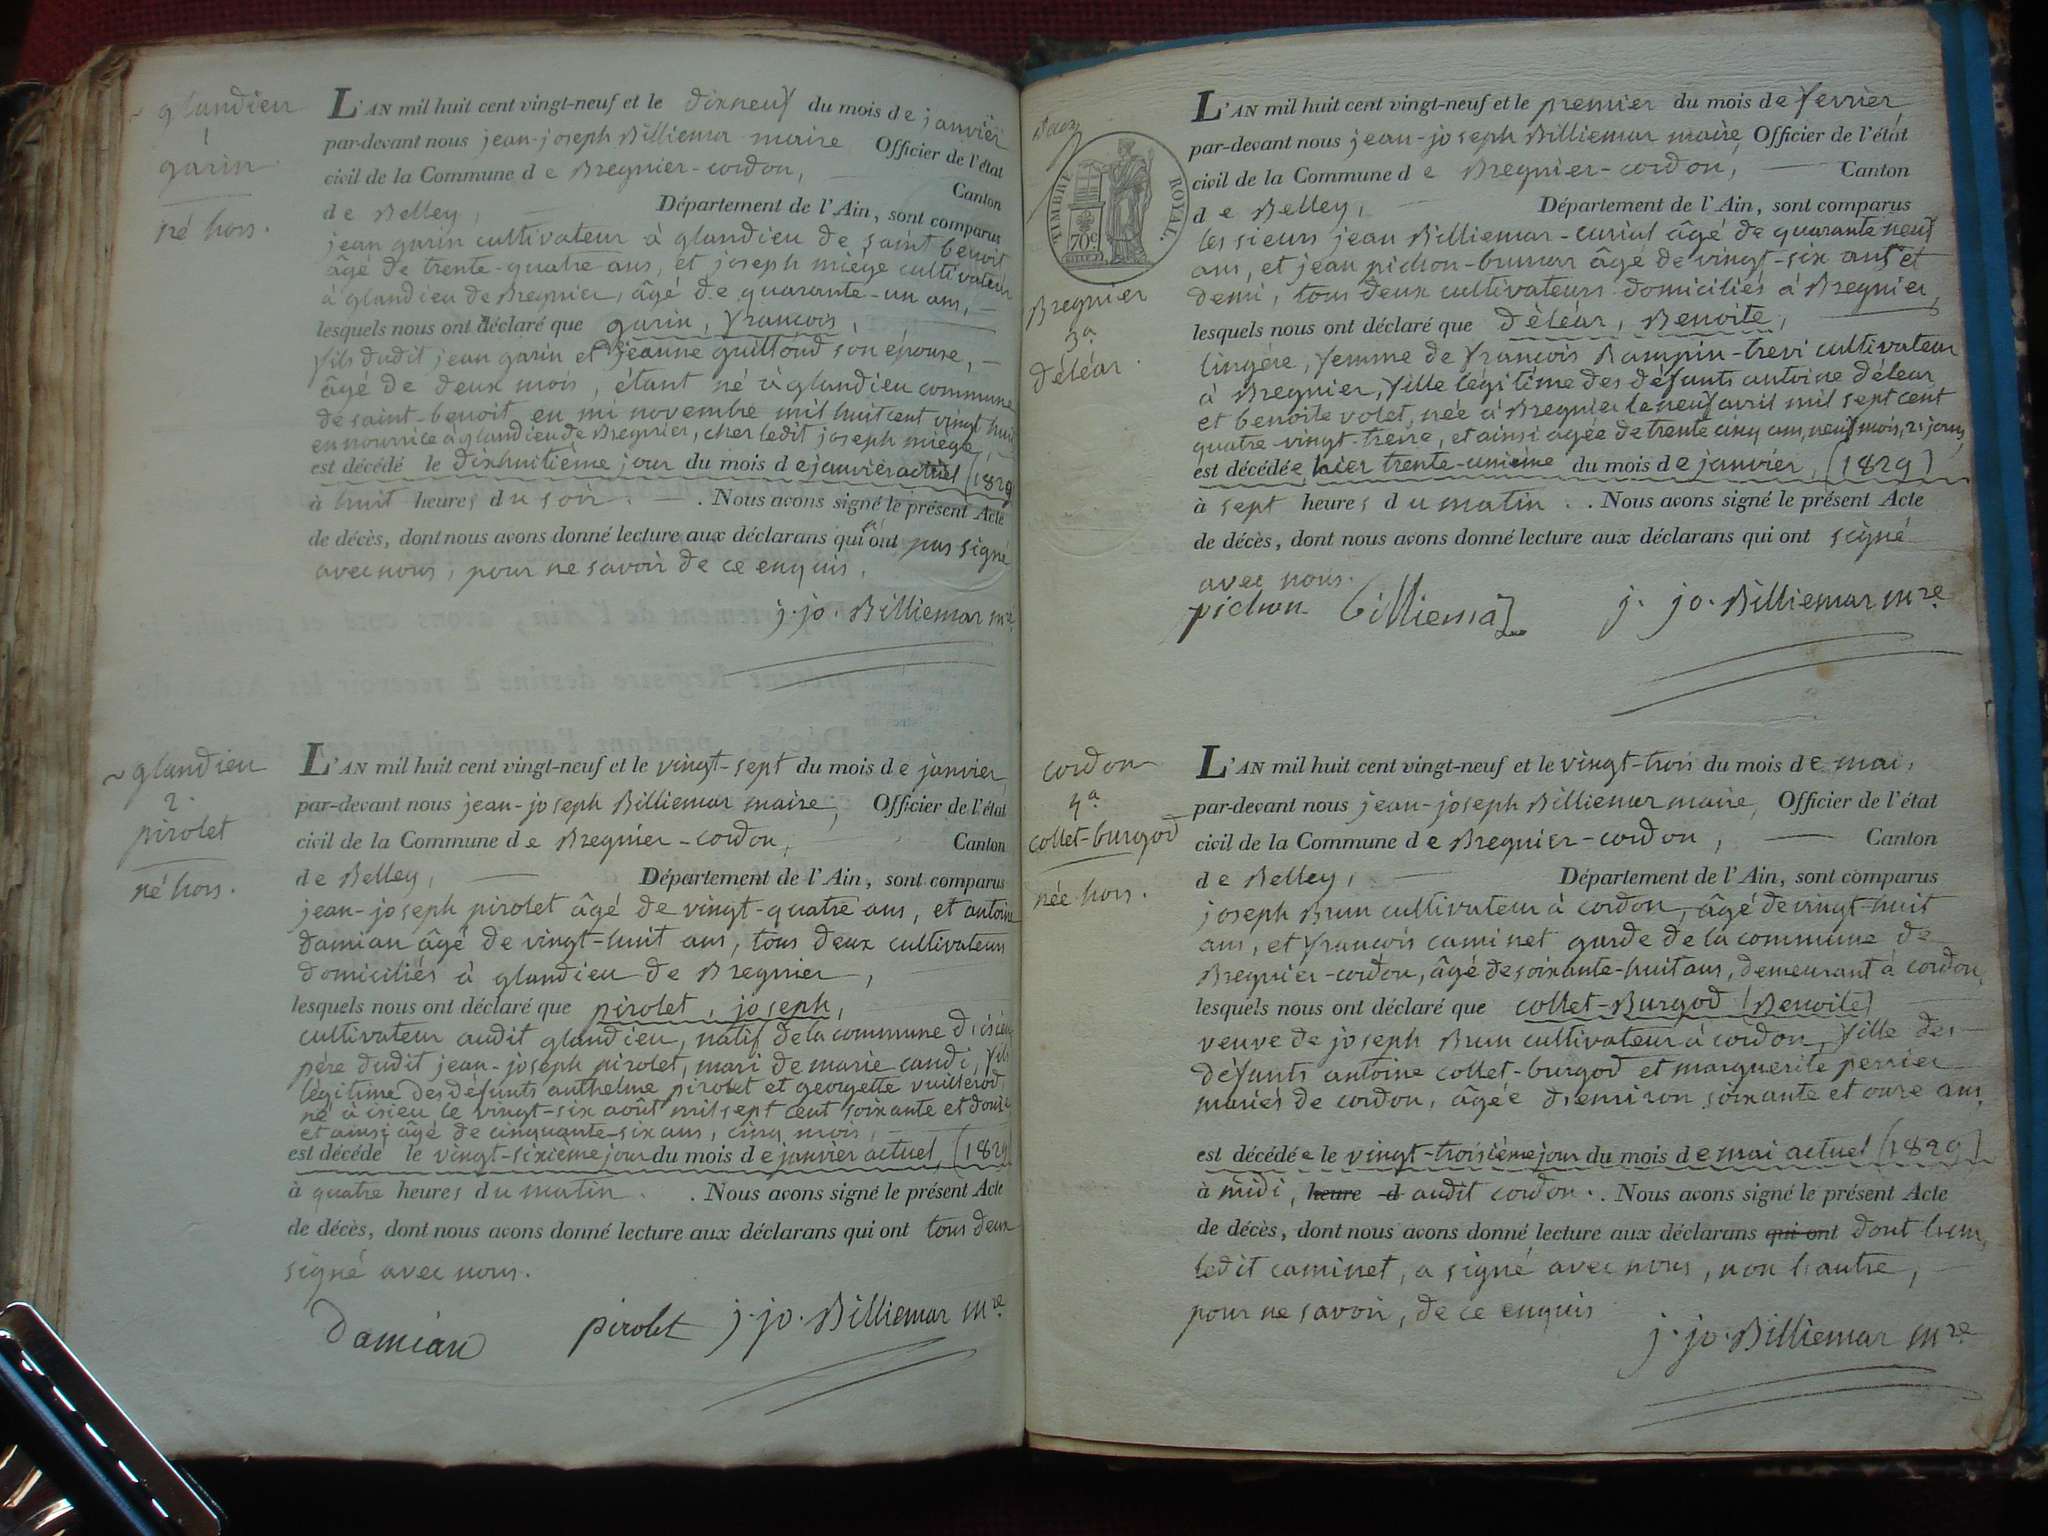 glandieu
1
garin
né hors.
L'AN mil huit cent vingt-neuf et le dixneuf du mois de janvier
par-devant nous jean-joseph Billiemar maire Officier de l'état
civil de la Commune de Bregnier-cordon, Canton
de Belley, Département de l'Ain, sont comparus
jean garin cultivateur à glandieu de saint benoit
âgé de trente-quatre ans, et joseph miége cultivateur
à glandieu de Bregnier, âgé de quarante-un ans,
lesquels nous ont déclaré que garin, françois,
fils dudit jean garin et jeanne guilloud son épouse,
âgé de deux mois, étant né à glandieu commune
de saint-benoit, en mi novembre mil huit cent vingt huit
en nourrice à glandieu de Bregnier, chez ledit joseph miége,
est décédé le dixhuitième jour du mois de janvier actuel (1829)
à huit heures du soir. Nous avons signé le présent Acte
de décès, dont nous avons donné lecture aux déclarans qui n'ont pas signé
avec nous, pour ne savoir de ce enquis.
j. jo. Billiemar mre
glandieu
2.
pirolet
né hors.
L'AN mil huit cent vingt-neuf et le vingt-sept du mois de janvier
par-devant nous jean-joseph Billiemar maire, Officier de l'état
civil de la Commune de Bregnier-cordon, Canton
de Belley, Département de l'Ain, sont comparus
jean-joseph pirolet âgé de vingt-quatre ans, et antoine
damian âgé de vingt-huit ans, tous deux cultivateurs
domiciliés à glandieu de Bregnier,
lesquels nous ont déclaré que pirolet, joseph,
cultivateur audit glandieu, natif de la commune d'isieu
père dudit jean-joseph pirolet, mari de marie candi, fils
légitime des défunts anthelme pirolet et georgette vuillerod,
né à isieu le vingt-six août mil sept cent soixante et douze
et ainsi âgé de cinquante-six ans, cinq mois,
est décédé le vingt-sixieme jour du mois de janvier actuel, (1829)
à quatre heures du matin. Nous avons signé le présent Acte
de décès, dont nous avons donné lecture aux déclarans qui ont tous deux
signé avec nous.
Damian pirolet j. jo. Billiemar mre
TIMBRE ROYAL.
70c
Bregnier
3a
déléar.
L'AN mil huit cent vingt-neuf et le premier du mois de fevrier
par-devant nous jean-joseph Billiemar maire, Officier de l'état
civil de la Commune de Bregnier-cordon, Canton
de Belley, Département de l'Ain, sont comparus
les sieurs jean Billiemar-curial âgé de quarante neuf
ans, et jean pichon-bumar âgé de vingt-six ans et
demi, tous deux cultivateurs domiciliés à Bregnier,
lesquels nous ont déclaré que déléar, Benoite,
lingére, femme de françois Rampin-trevi cultivateur
à Bregnier, fille légitime des défunts antoine déléar
et benoite volet, née à Bregnier le neuf avril mil sept cent
quatre-vingt-treize, et ainsi agée de trente cinq ans, neuf mois, 21 jours,
est décédée hier trente-unieme du mois de janvier, (1829)
à sept heures du matin. Nous avons signé le présent Acte
de décès, dont nous avons donné lecture aux déclarans qui ont signé
avec nous.
pichon billiemar j. jo. Billiemar mre
cordon
4a
collet-burgod
née hors.
L'AN mil huit cent vingt-neuf et le vingt-trois du mois de mai,
par-devant nous jean-joseph Billiemar maire, Officier de l'état
civil de la Commune de Bregnier-cordon, Canton
de Belley, Département de l'Ain, sont comparus
joseph Brun cultivateur à cordon, âgé de vingt-huit
ans, et françois caminet garde de la commune de
Bregnier-cordon, âgé de soixante-huit ans, demeurant à cordon,
lesquels nous ont déclaré que collet-Burgod (Benoite)
veuve de joseph Brun cultivateur à cordon, fille des
défunts antoine collet-burgod et marguerite perrier
mariés de cordon, âgée d'environ soixante et onze ans,
est décédée le vingt-troisième jour du mois de mai actuel (1829)
à midi, heure d audit cordon. Nous avons signé le présent Acte
de décès, dont nous avons donné lecture aux déclarans qui ont dont l'un,
ledit caminet, a signé avec nous, non l'autre,
pour ne savoir, de ce enquis
j. jo. Billiemar mre